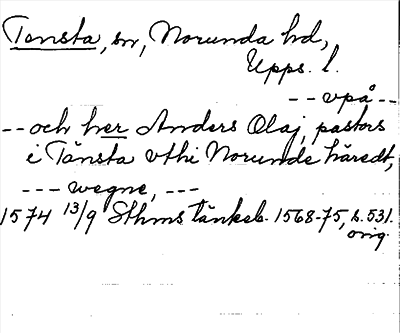 Tensta, sn, Norunda hd,
Upps. l.
-- vpå --
-- och her Anders Olaj, pastors
i Tänsta vthi Norunde häredt,
--- wegne, ---
1574 13/9 Sthms tänkeb. 1568-75, s. 531.
orig.